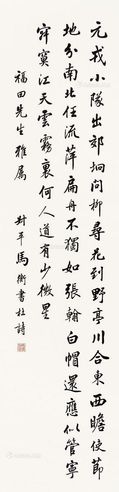 元戎小隊出郊坰問柳尋花到野亭川合東西瞻使節
地分南北任流萍扁舟不獨如張翰白帽還應似管寧
寂寞江天雲霧裏何人道有少微星
福田先生雅屬
叔平馬衡書杜詩